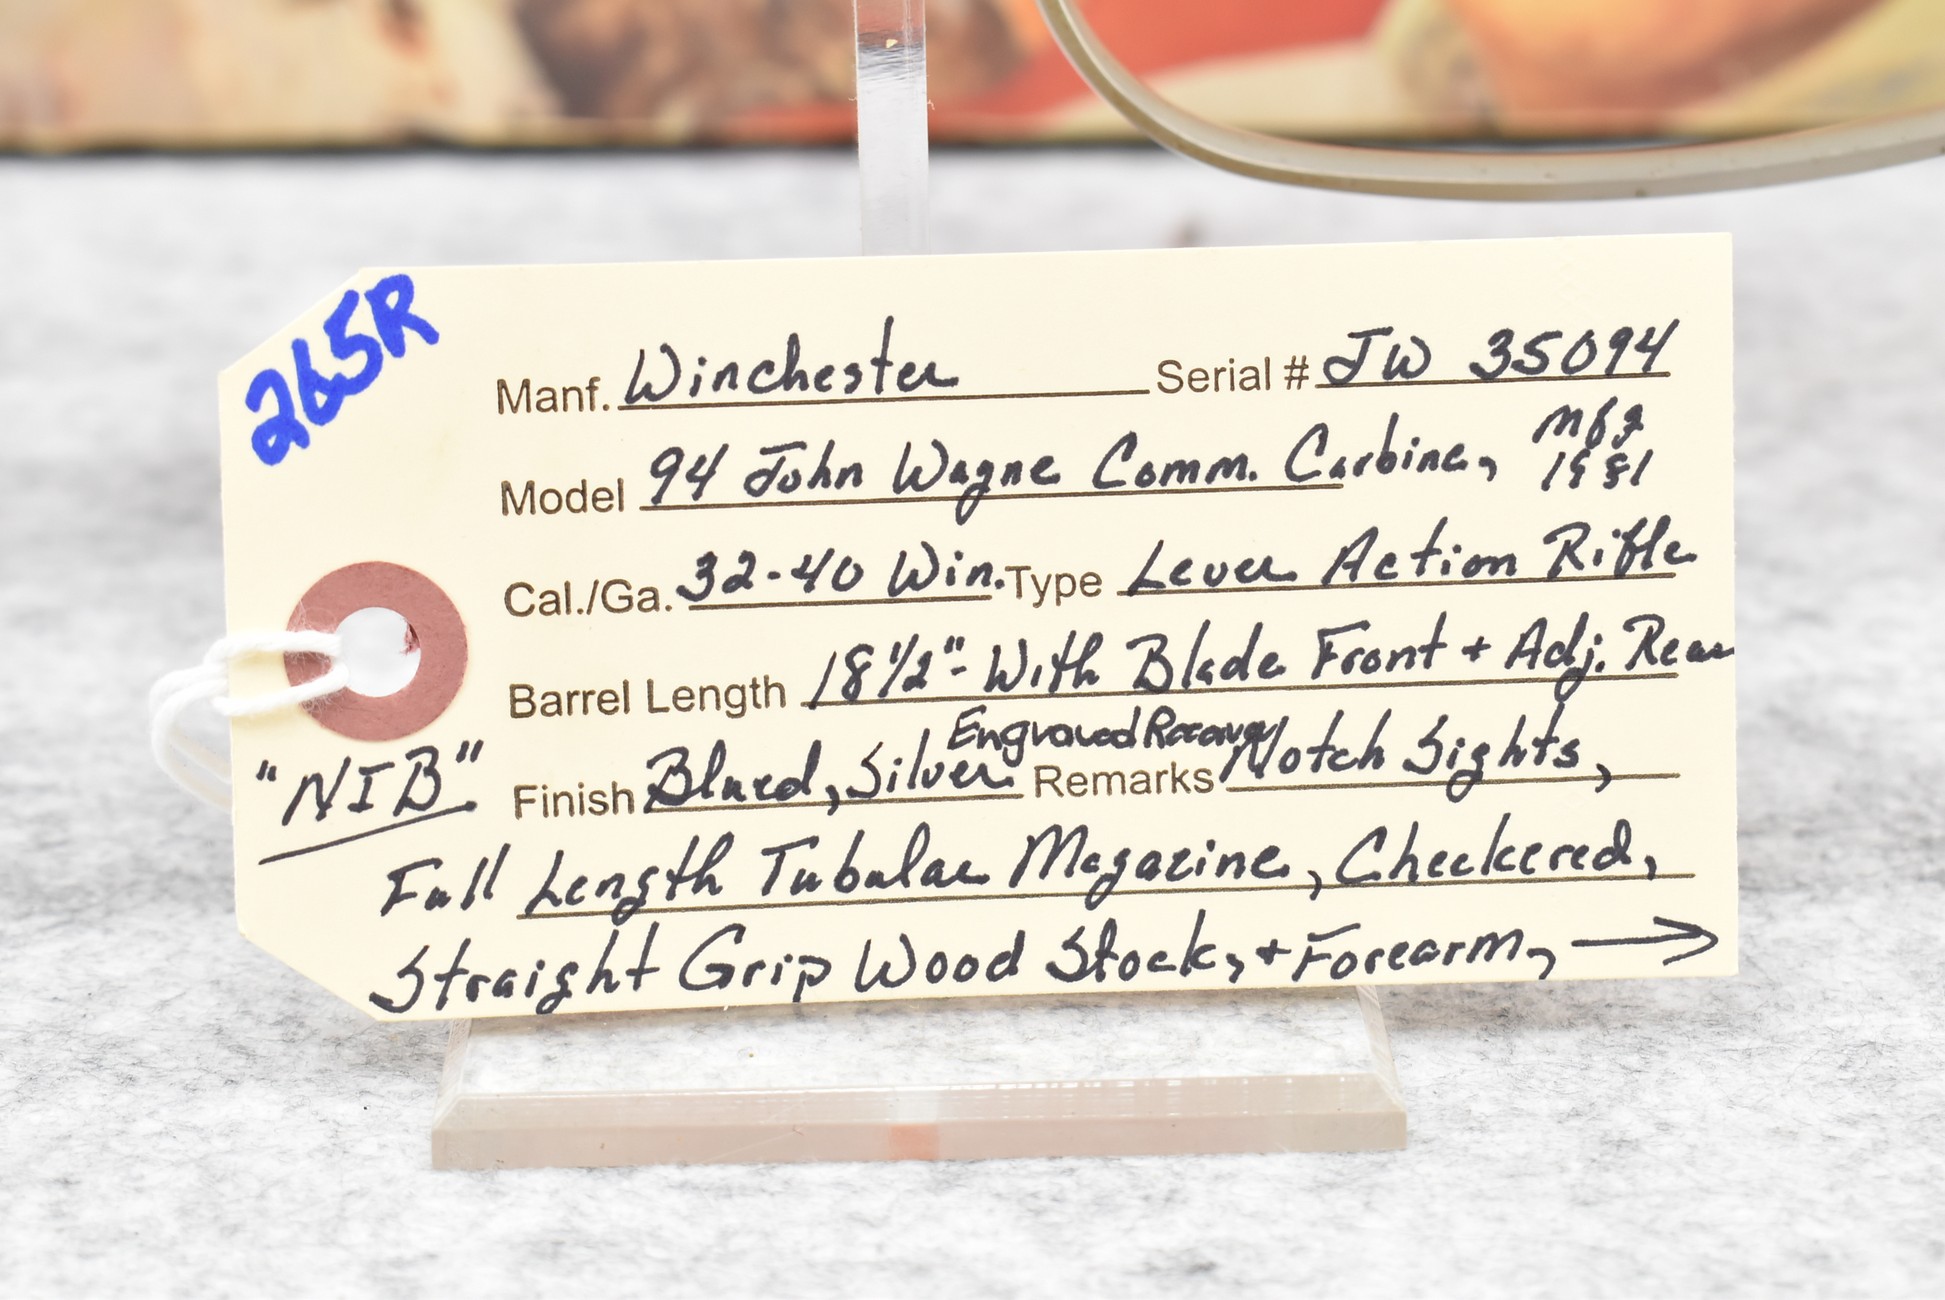 265R
Manf. Winchester Serial # JW 35094
Model 94 John Wayne Comm. Carbine, Mfg 1981
Cal./Ga. 32-40 Win. Type Lever Action Rifle
Barrel Length 18 1/2"- With Blade Front + Adj. Rear
"NIB" Finish Blued, Silver Engraved Receiver Remarks Notch Sights,
Full Length Tubular Magazine, Checkered,
Straight Grip Wood Stock, + Forearm, →